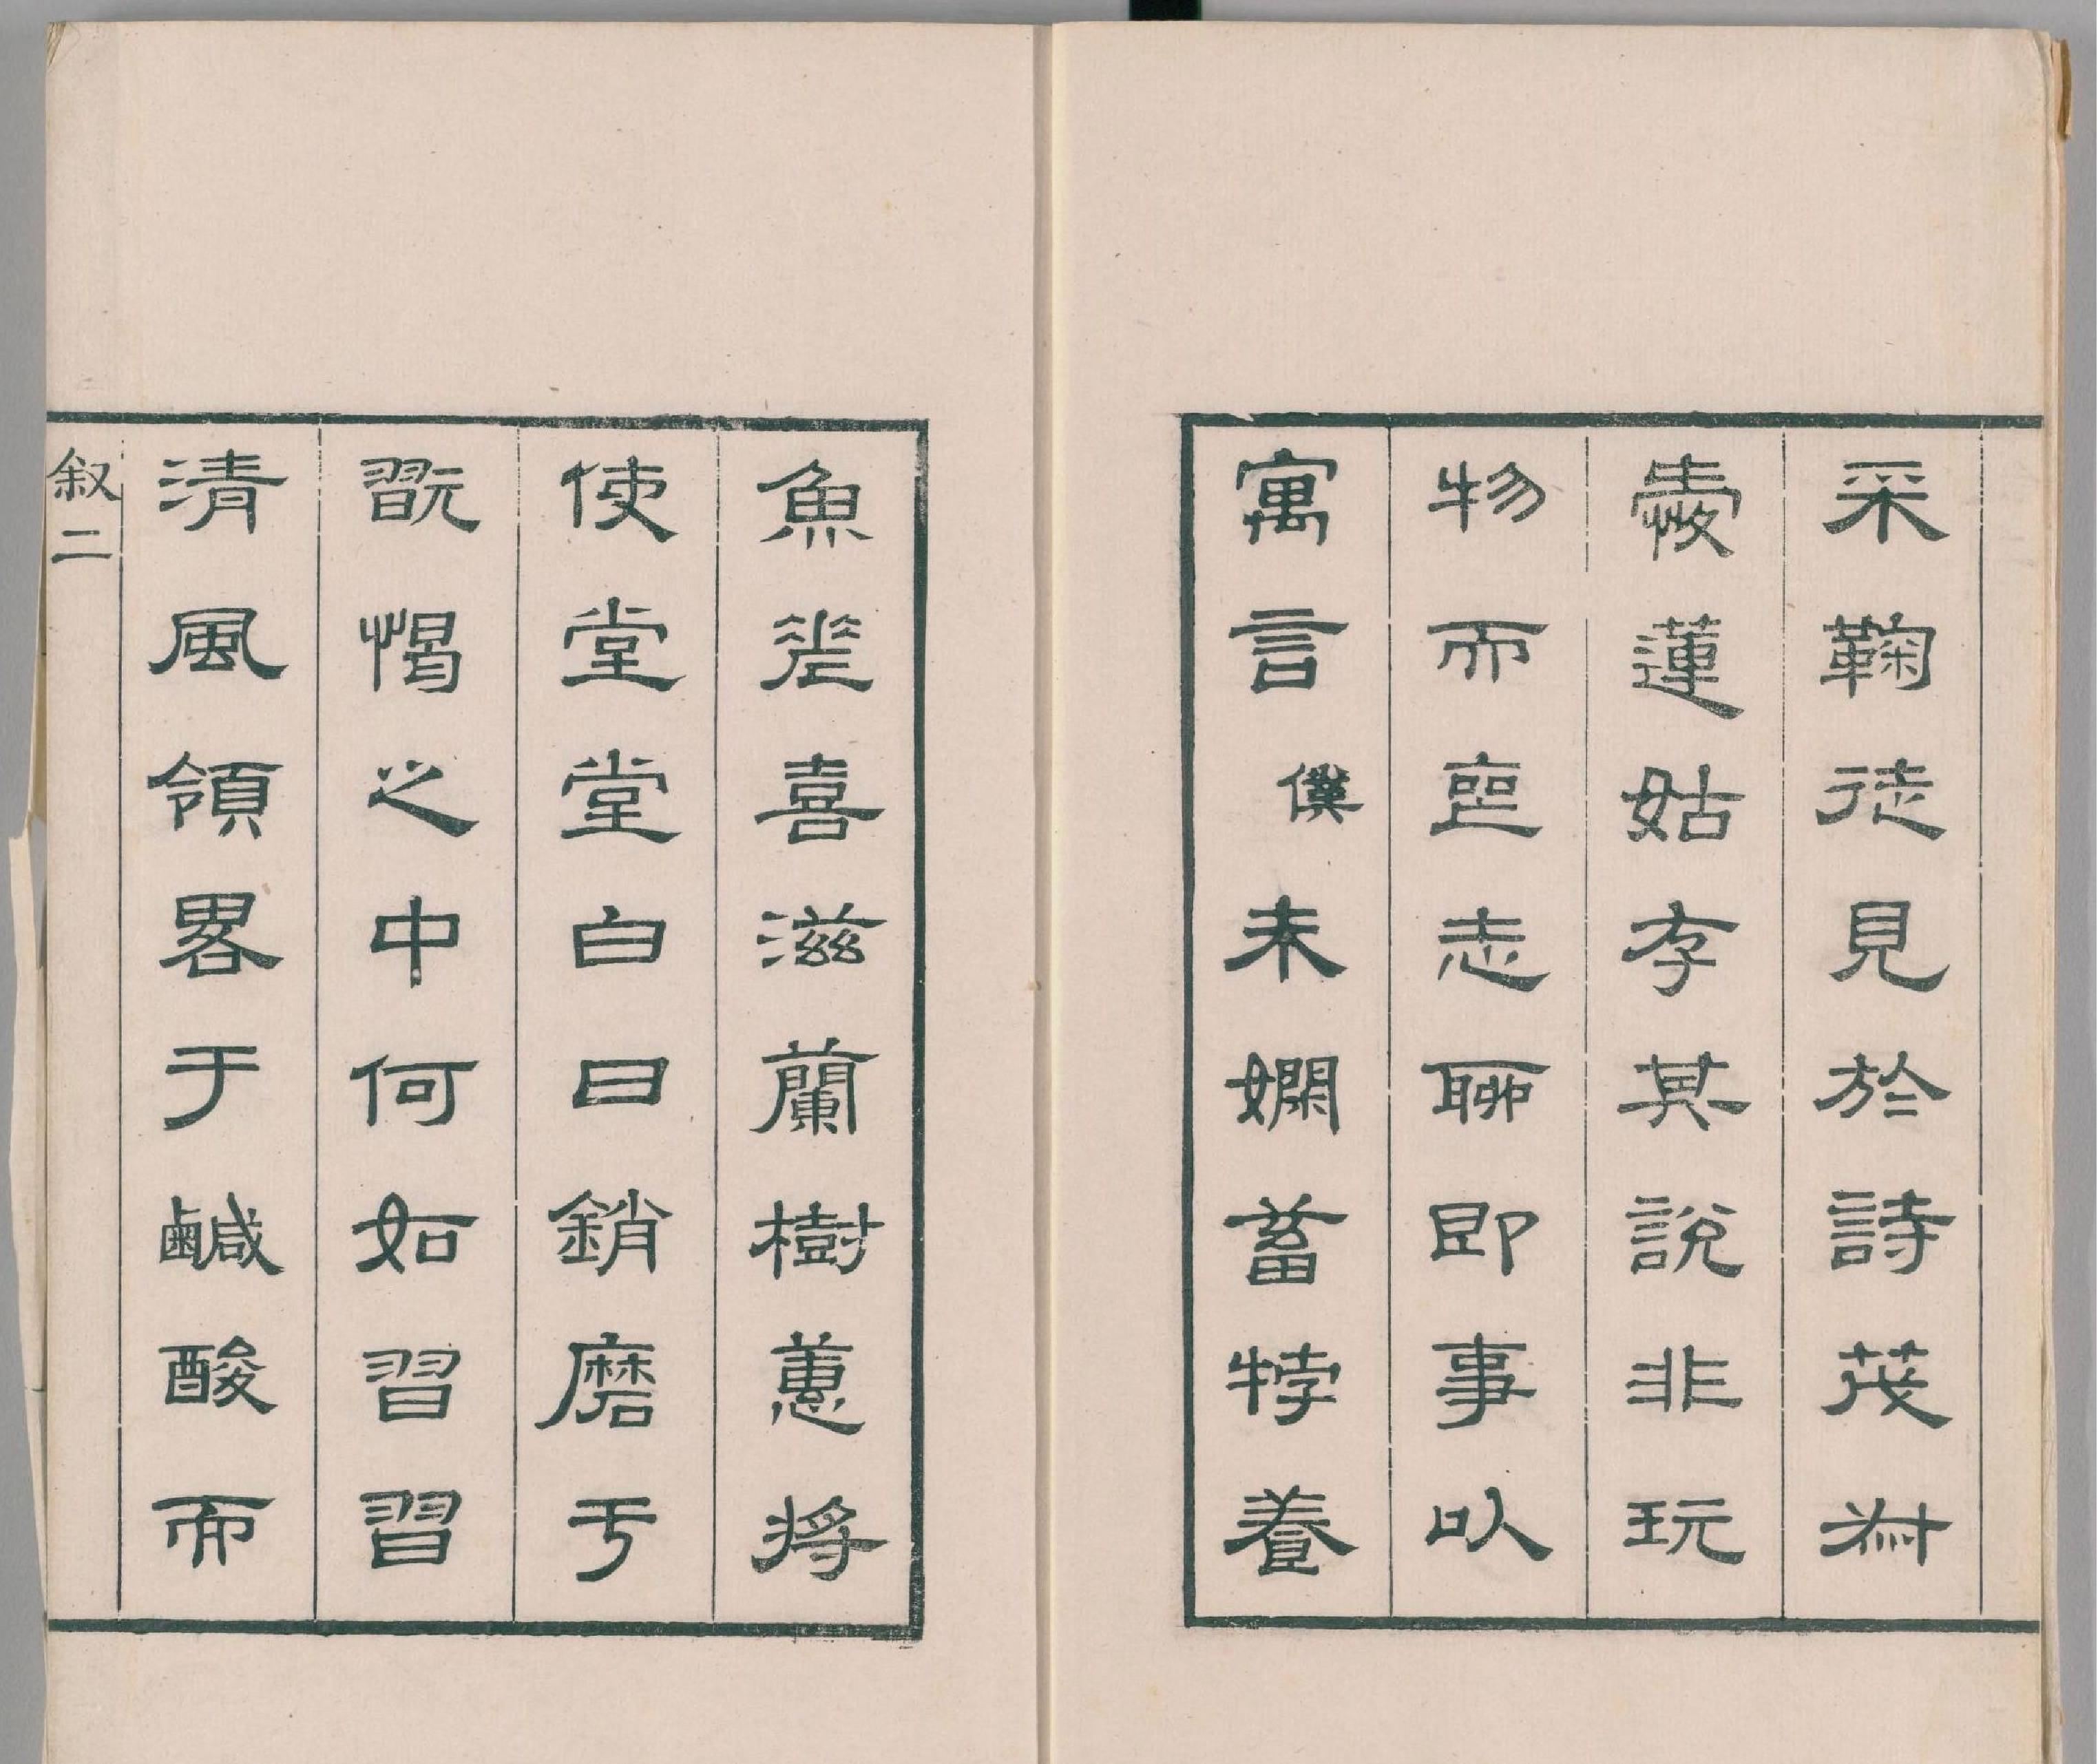 采鞠徒見於詩茂叔
愛蓮姑存其說非玩
物而喪志聊即事以
寓言僕未嫻蓄牸養
魚華喜滋蘭樹蕙將
使堂堂白日銷磨亏
翫愒之中何如習習
清風領畧于鹹酸而
叙二